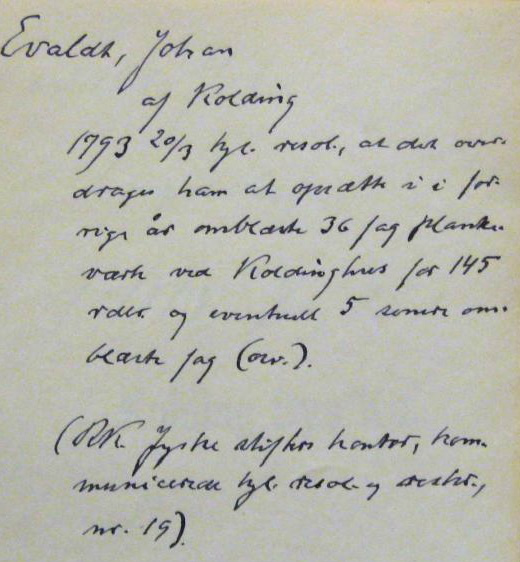 Evaldt, Johan
af Kolding
1793 20/3 kgl. resol., at det over-
drages ham at opsætte i i for-
rige år omblæste 36 fag planke-
værk ved Koldinghus for 145
rdlr. og eventuelt 5 senere om-
blæste fag (orv.).
(RK. Jyske stifters kontor, kom-
municerede kgl. resol. og reskr.,
nr. 19).